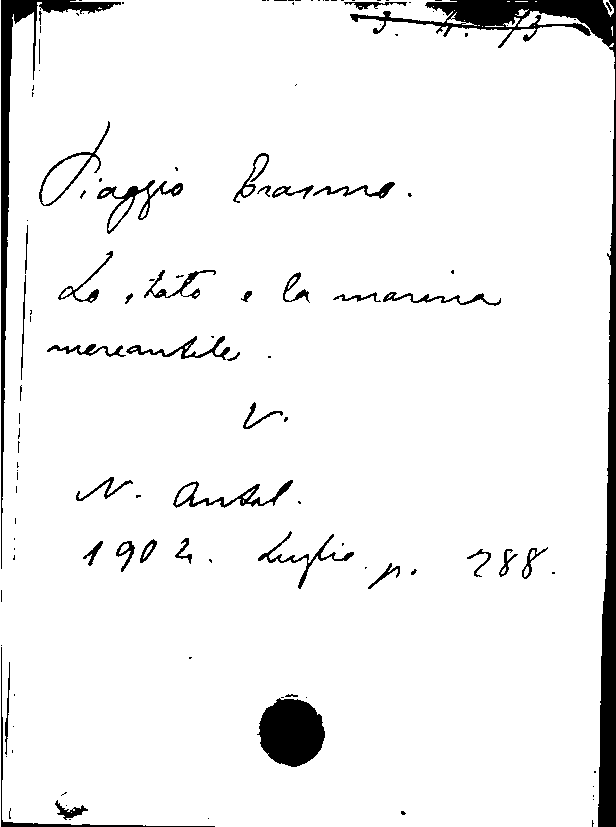 3. 4. 73
Piaggio Erasmo.
Lo stato e la marina
mercantile.
V.
N. Antol.
1902. Luglio p. 288.